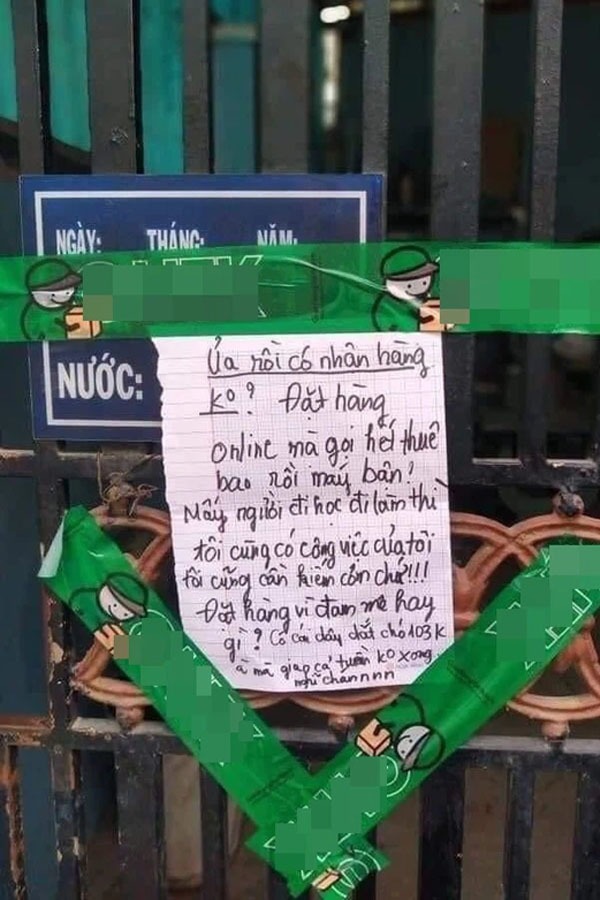 NGÀY: THÁNG: NĂM:
NƯỚC:
Ủa rồi có nhân hàng
ko? Đặt hàng
online mà gọi hết thuê
bao rồi máy bận!
Mấy người đi học đi làm thì
tôi cũng có công việc của tôi
tôi cũng cần kiếm cơm chứ!!!
Đặt hàng vì đam mê hay
gì? Có cái dây dắt chó 103K
à mà giao cả tuần ko xong.
nghĩ channnn